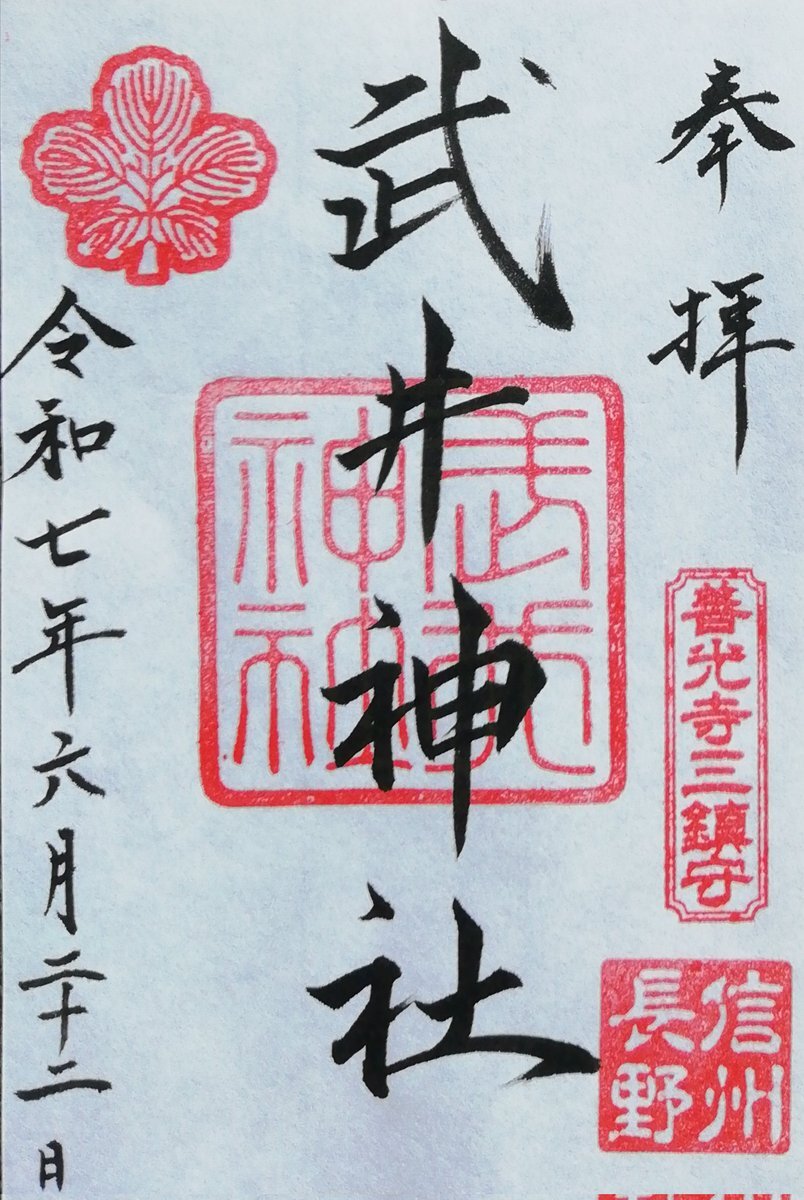 奉拝
善光寺三鎮守
信州
長野
武井神社
令和七年六月二十二日